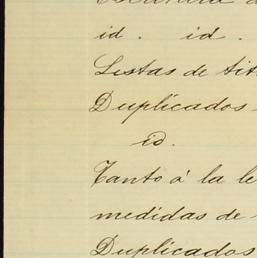 id. id.
Listas de
Duplicados
id.
Tanto á la
medidas de
Duplicados